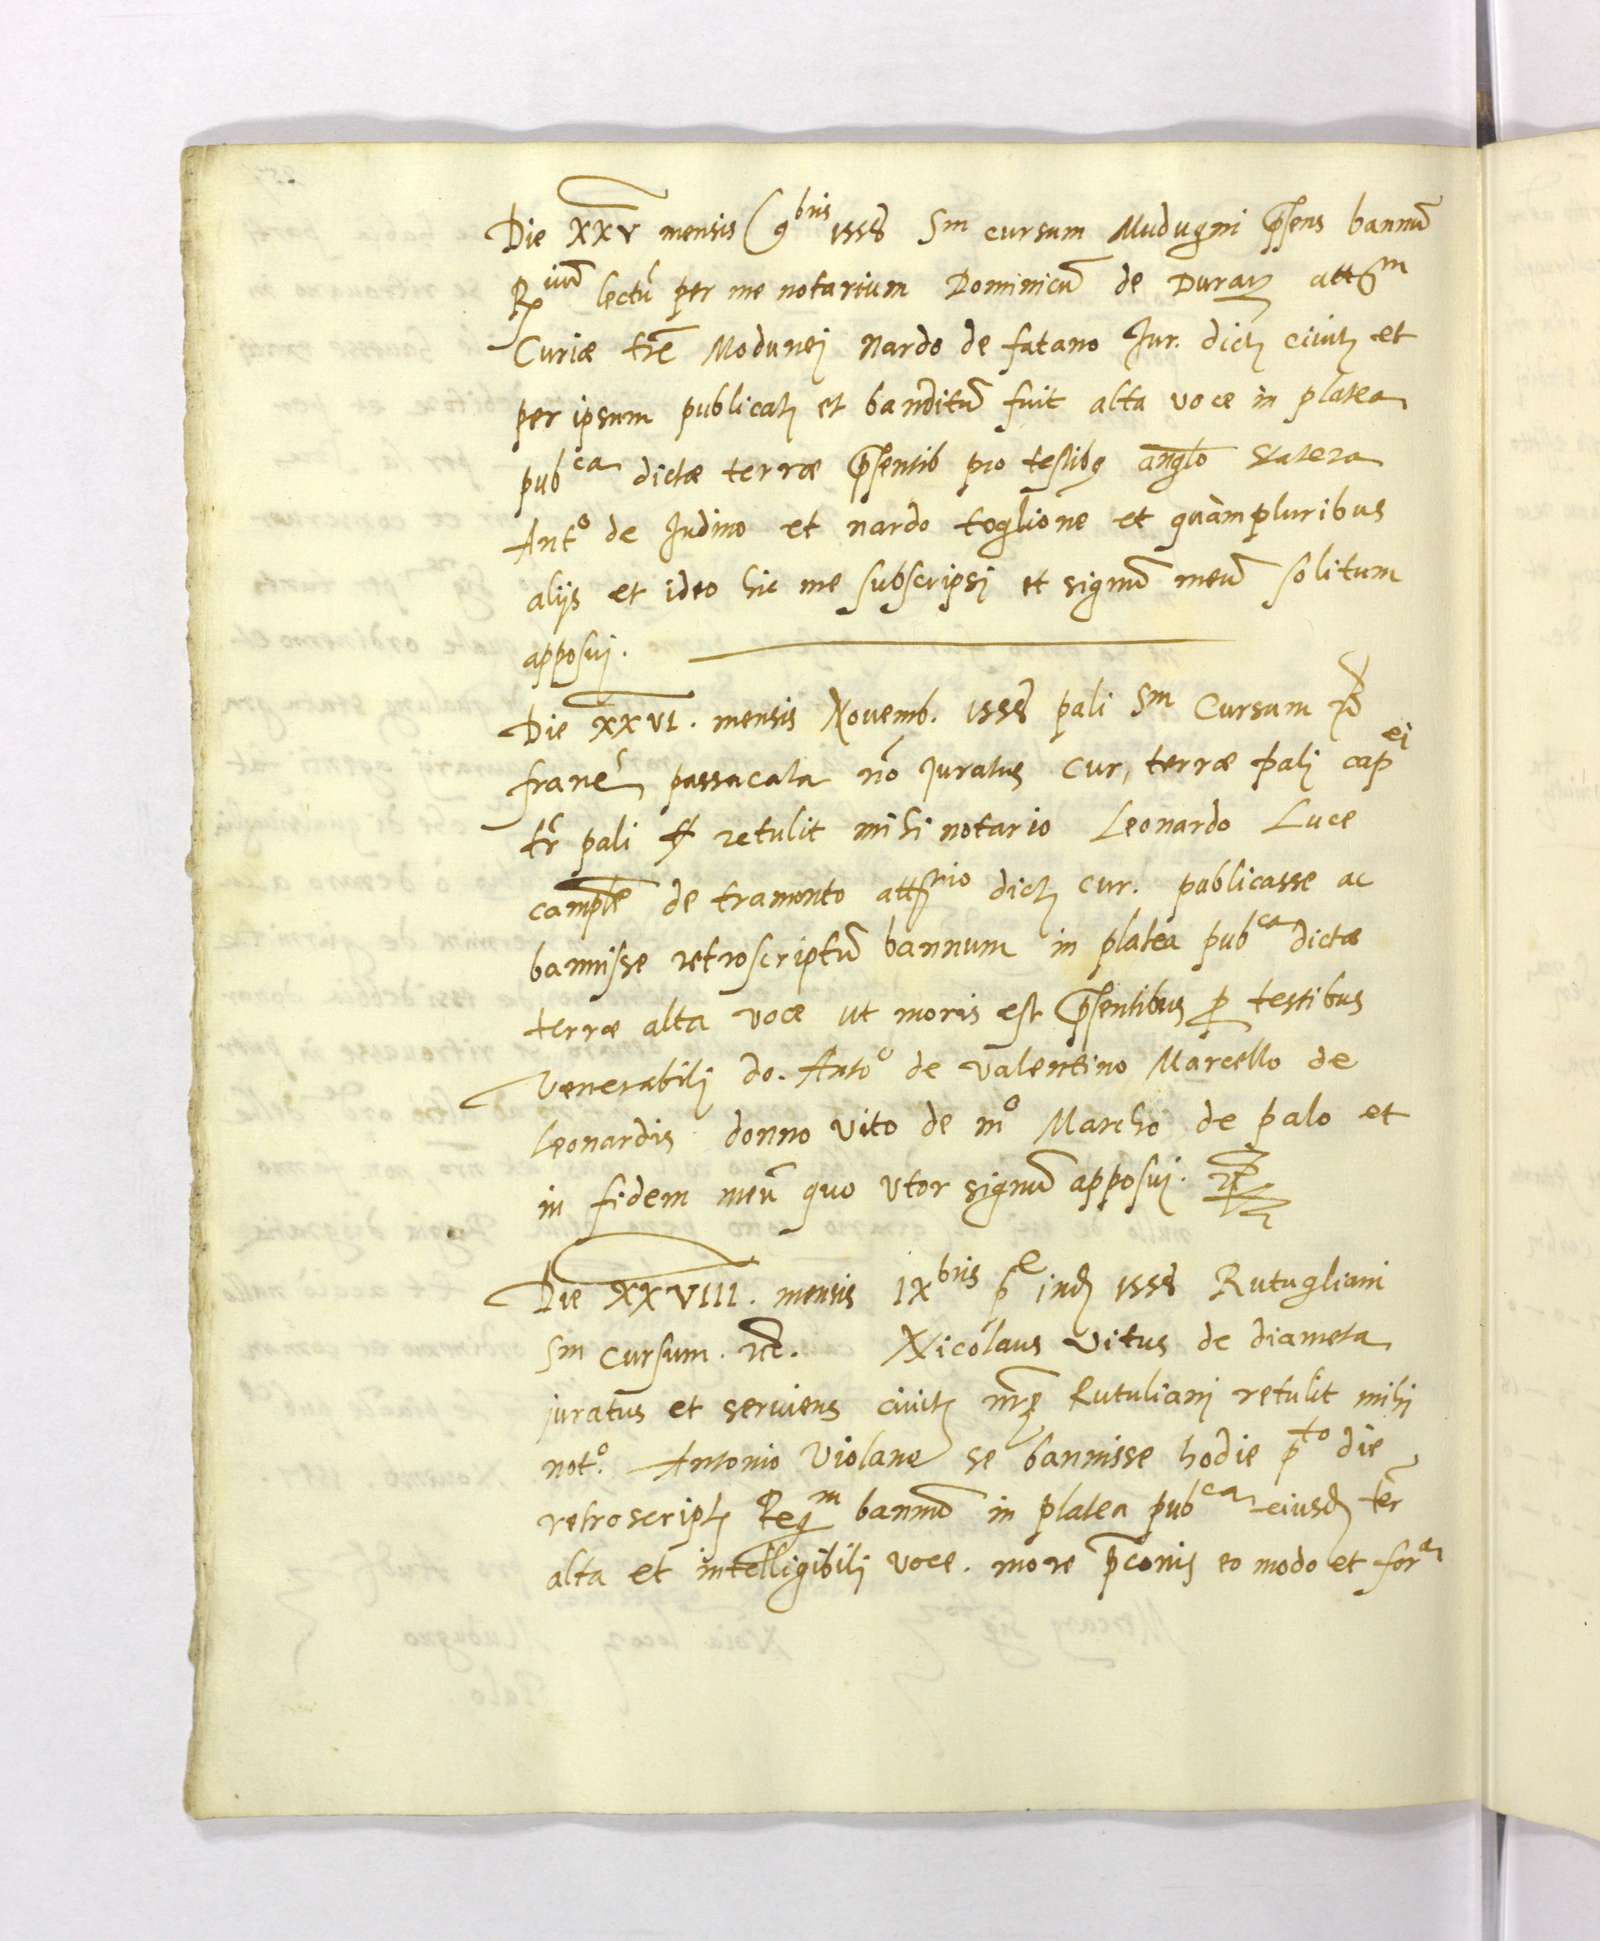 Die XXV mensis 9bris 1558 Sm cursum Mudugni p̃sens bannũ
Rium lectũ per me notarium Dominicũ de Duraz
Curiæ trẽ Modunei Nardo de fatano Jur. dict civit et
per ipsum publicat et banditũ fuit alta voce in platea
pubca dictæ terræ p̃sentib pro testibq anglo statera
Anto de Judino et nardo toglione et quàmpluribus
alijs et ideo hic me subscripsi et signũ meũ solitum
apposui.
Die XXVI. mensis Novemb. 1558 pali Sm Cursum
francs passacata nõ juratus cur, terræ pali capei
tr̃ pali retulit mihi notario Leonardo Luce
camplẽ de tramonto dict cur. publicasse ac
bannisse retroscriptũ bannum in platea pubca dictæ
terræ alta voce ut moris est p̃sentibus p testibus
Venerabili do. Anto de valentino Marcello de
Leonardis donno vito de mo Marcho de palo et
in fidem meũ quo utor signũ apposui.
Die XXVIII. mensis IXbris pe ind 1558 Rutugliani
Sm cursum. etc. Nicolaus Vitus de diamera
juratus et serviens civit Rutuliani retulit mihi
noto. Antonio Violane se bannisse hodie pto die
retroscript Regm bannũ in platea pubca eiusd ter
alta et intelligibili voce. more p̃conis eo modo et fora